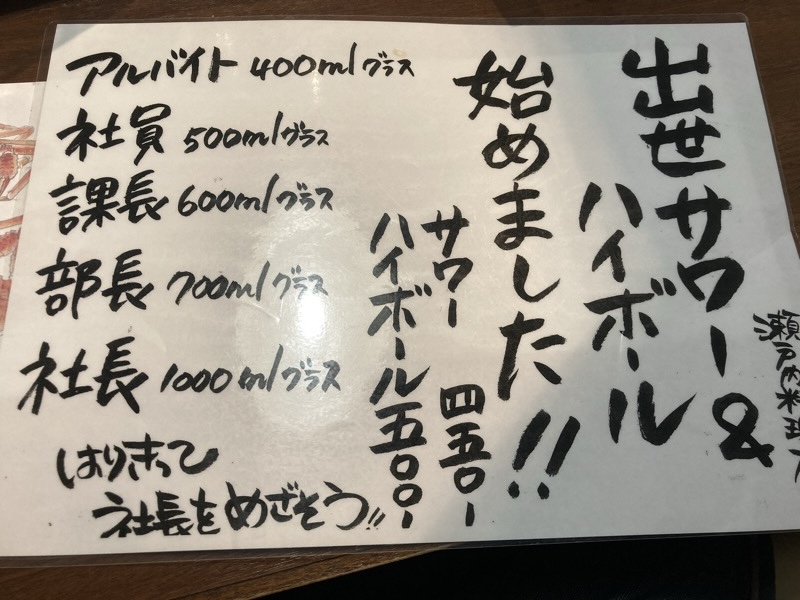 出世サワー&
ハイボール
始めました!!
サワー 四五〇-
ハイボール五〇〇-
アルバイト 400mlグラス
社員 500mlグラス
課長 600mlグラス
部長 700mlグラス
社長 1000mlグラス
はりきって
社長をめざそう!!